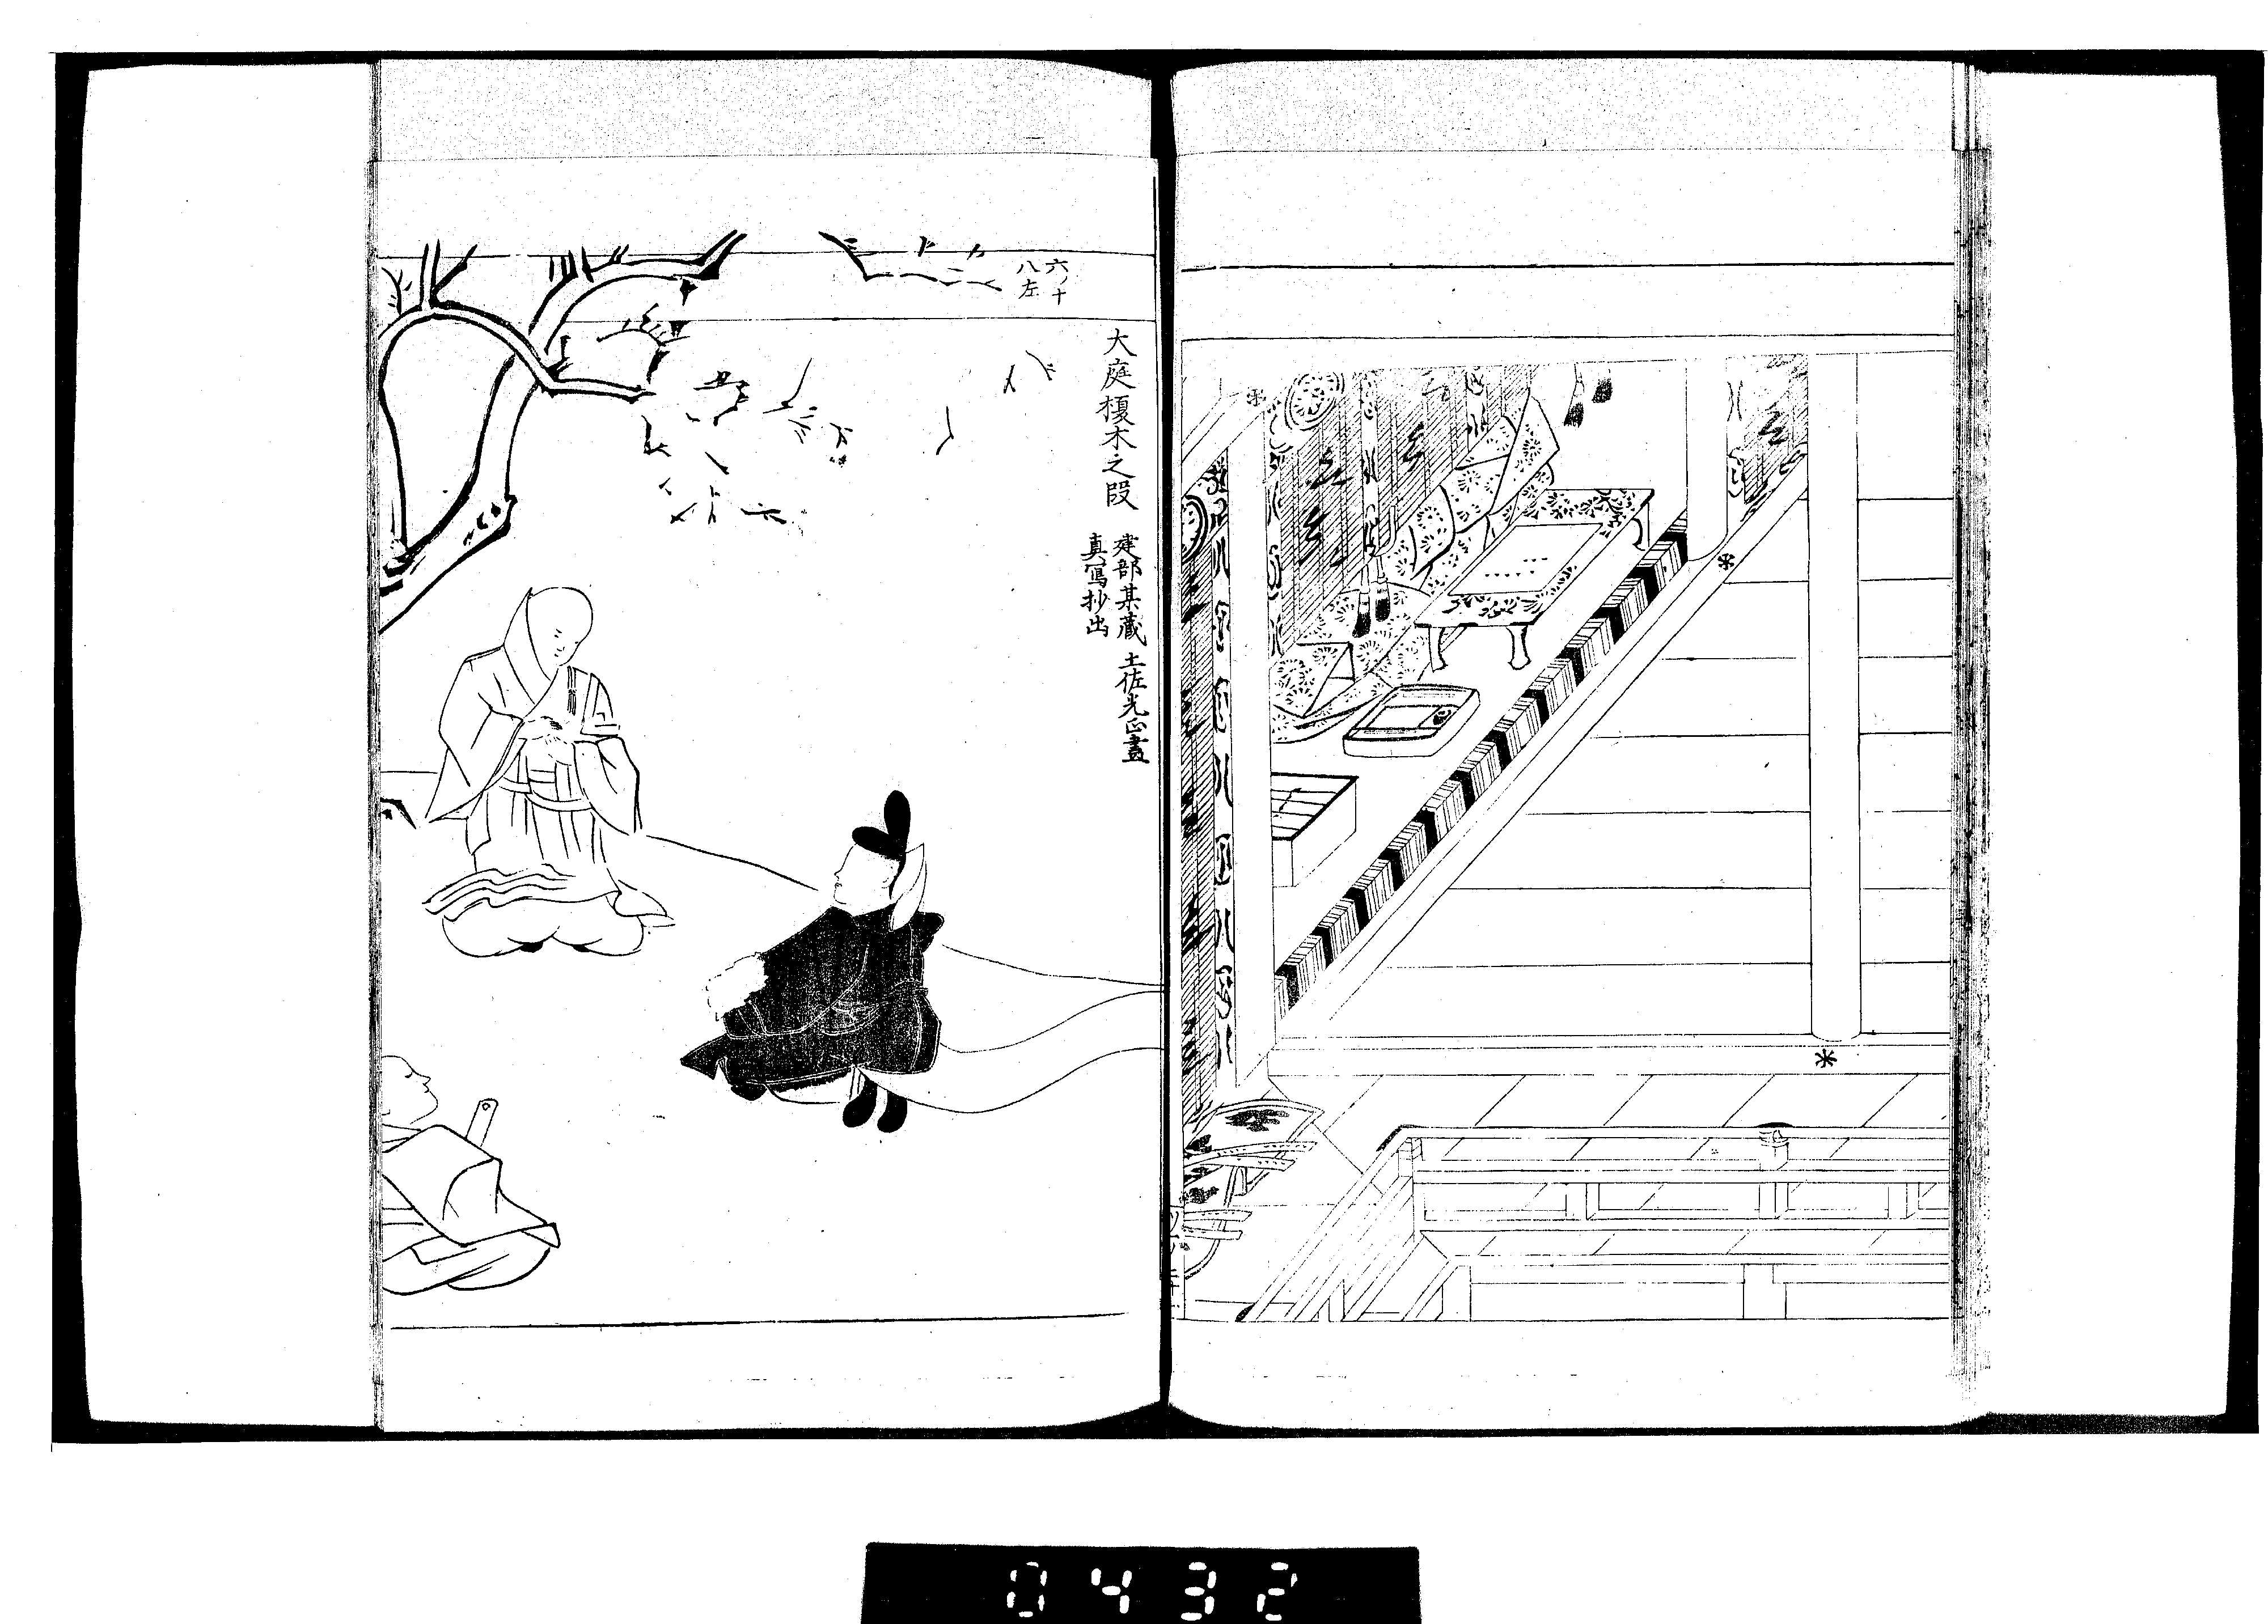 六ノ十
八左
大庭榎木之段
建部某蔵 土佐光正畫
真寫抄出
0432